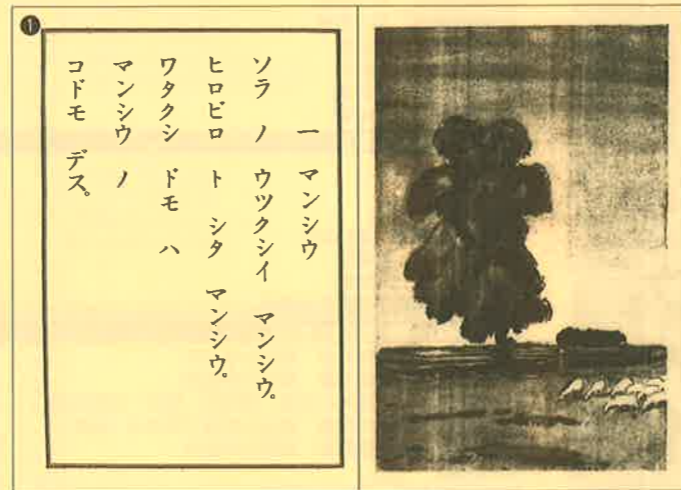 ❶
一 マンシウ
ソラ ノ ウツクシイ マンシウ。
ヒロビロ ト シタ マンシウ。
ワタクシ ドモ ハ
マンシウ ノ
コドモ デス。